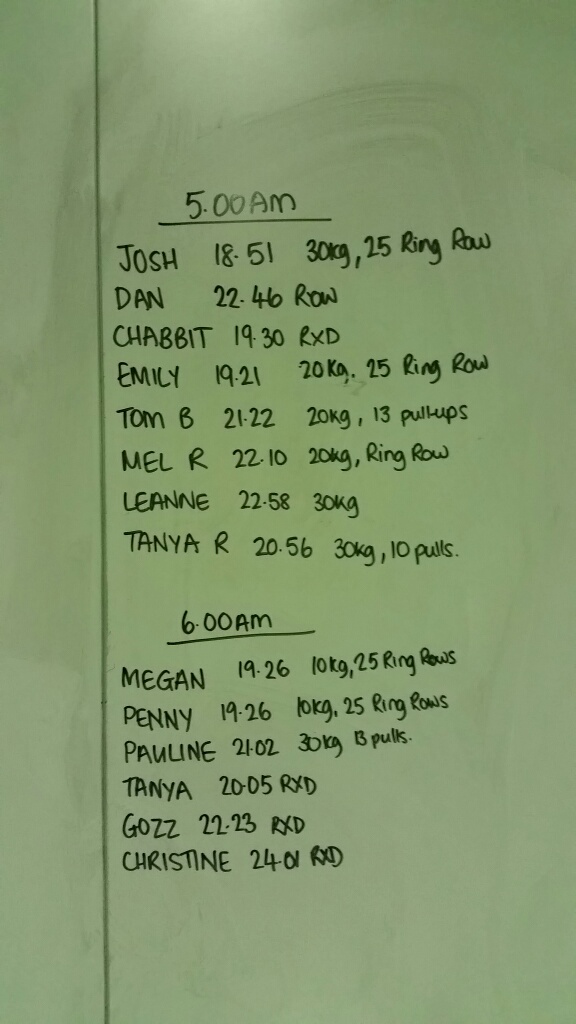 5.00AM
JOSH 18.51 30kg, 25 Ring Row
DAN 22.46 Row
CHABBIT 19.30 RXD
EMILY 19.21 20kg. 25 Ring Row
TOM B 21.22 20kg, 13 pull-ups
MEL R 22.10 20kg, Ring Row
LEANNE 22.58 30kg
TANYA R 20.56 30kg, 10 pulls.
6.00AM
MEGAN 19.26 10kg, 25 Ring Rows
PENNY 19.26 10kg, 25 Ring Rows
PAULINE 21.02 30kg 13 pulls.
TANYA 20.05 RXD
GOZZ 22.23 RXD
CHRISTINE 24.01 RXD